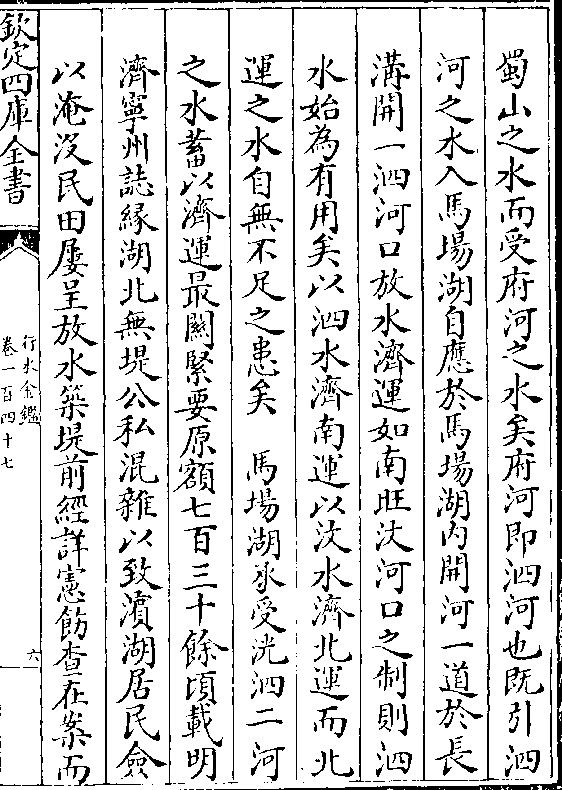 蜀山之水而受府河之水矣府河即泗河也既引泗
河之水入馬場湖自應於馬場湖内開河一道於長
溝開一泗河口放水濟運如南旺汶河口之制則泗
水始為有用矣以泗水濟南運以汶水濟北運而北
運之水自無不足之患矣　馬場湖承受洸泗二河
之水蓄以濟運最關緊要原額七百三十餘頃載明
濟寧州誌緣湖北無堤公私混雜以致濵湖居民僉
以淹沒民田屢呈放水築堤前經詳憲飭查在案而
欽定四庫全書
行水金鑑
卷一百四十七
六